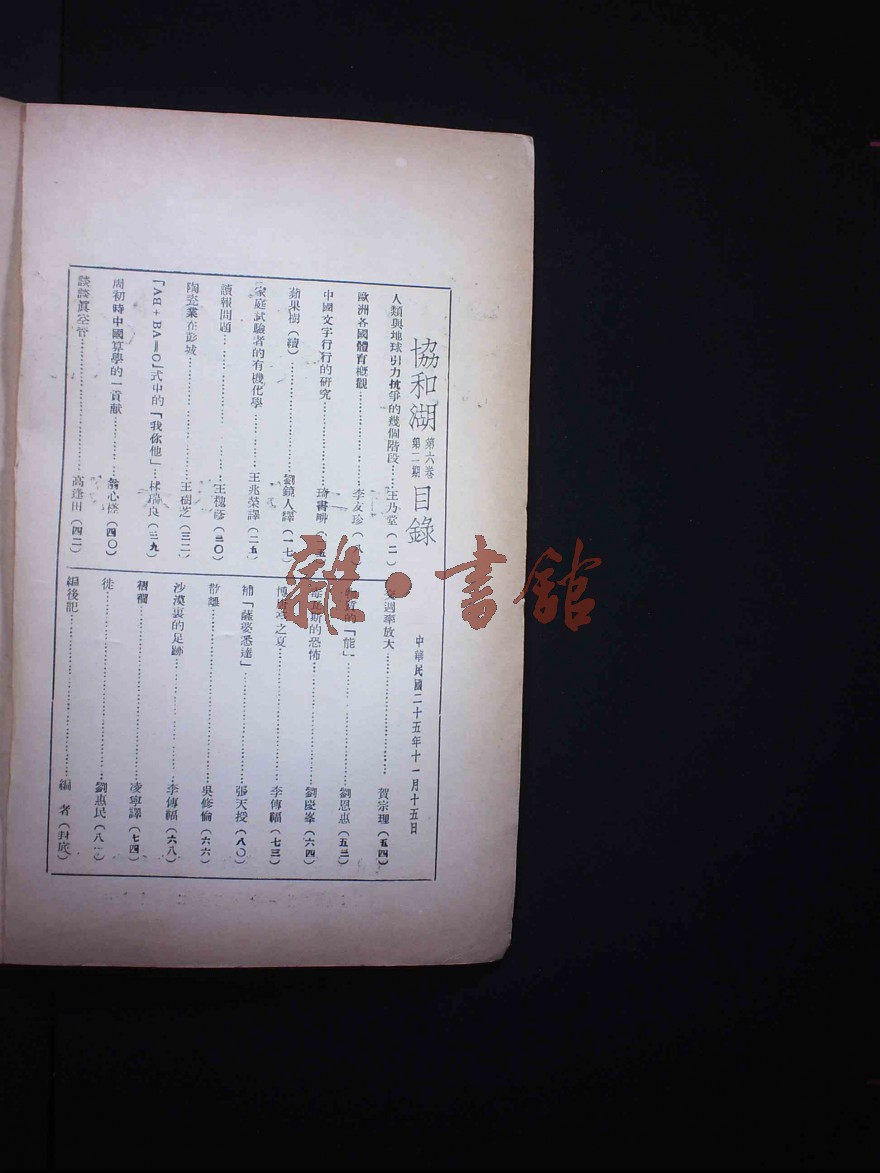 協和湖 第六卷 第二期 目錄
中華民國二十五年十一月十五日
人類與地球引力抗爭的幾個階段……王乃堂(二)
歐洲各國體育概觀……李友珍(八)
中國文字行行的研究……琦書
蘋果樹(續)……劉鏡人譯(一七)
家庭試驗者的有機化學……王兆榮譯(二五)
讀報問題……王槐(三〇)
陶瓷業在彭城……王樹芝(三二)
「AB+BA=O」式中的「我你他」……林瑞良(三九)
周初時中國算學的一貢献……心(四〇)
談談眞空管……高逢田(四二)
週率放大……賀宗理(五四)
的「能」……劉恩惠(五三)
斯的恐怖……劉慶峯(六四)
之夏……李傳福(七三)
補「薩婆悉達」……張天授(八〇)
散離……吳修倫(六六)
沙漠裏的足跡……李傳福(六八)
襁褓……凌寧譯(七四)
徙……劉惠民(八一)
編後記……編者(封底)
雜·書館